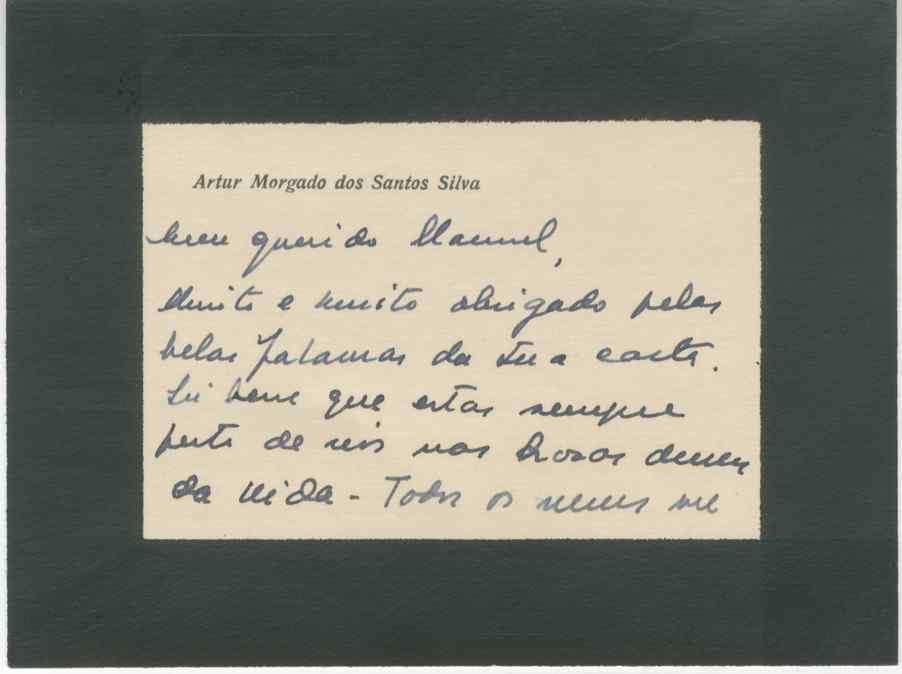 Artur Morgado dos Santos Silva
Meu querido Manuel,
Muito e muito obrigado pelas
belas palavras da tua carta.
Sei bem que estás sempre
perto de nós nas horas
da vida - Todos os meus me